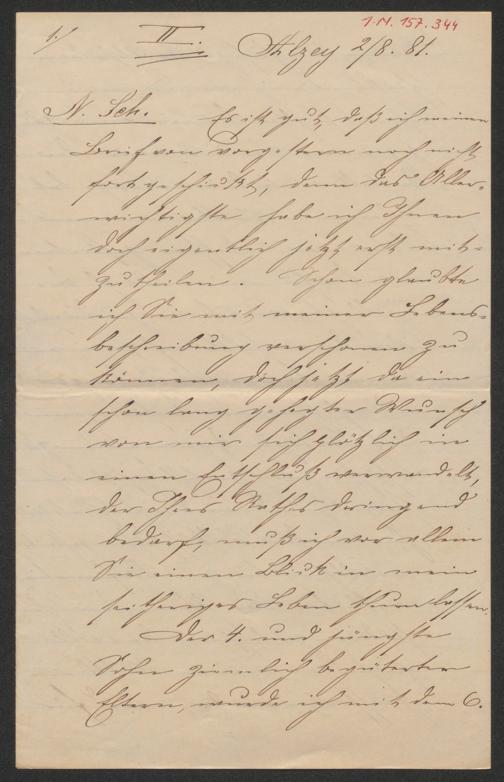 I.N. 157.344
1.) II. Alzey 2/8. 81.
N. Sch. Es ist gut, daß ich meinen
Brief von vorgestern noch nicht
fortgeschickt, denn das Aller-
wichtigste habe ich Ihnen
doch eigentlich jetzt erst mit-
zutheilen. Schon glaubte
ich Sie mit meiner Lebens-
beschreibung verschonen zu
können, doch jetzt da ein
schon lang gehegter Wunsch
von mir sich plötzlich in
einen Entschluß verwandelt,
der Ihres Rathes dringend
bedarf, muß ich vor allem
Sie einen Blick in mein
seitheriges Leben thun lassen.
Der 4. und jüngste
Sohn ziemlich begüterter
Eltern, wurde ich mit dem 6.